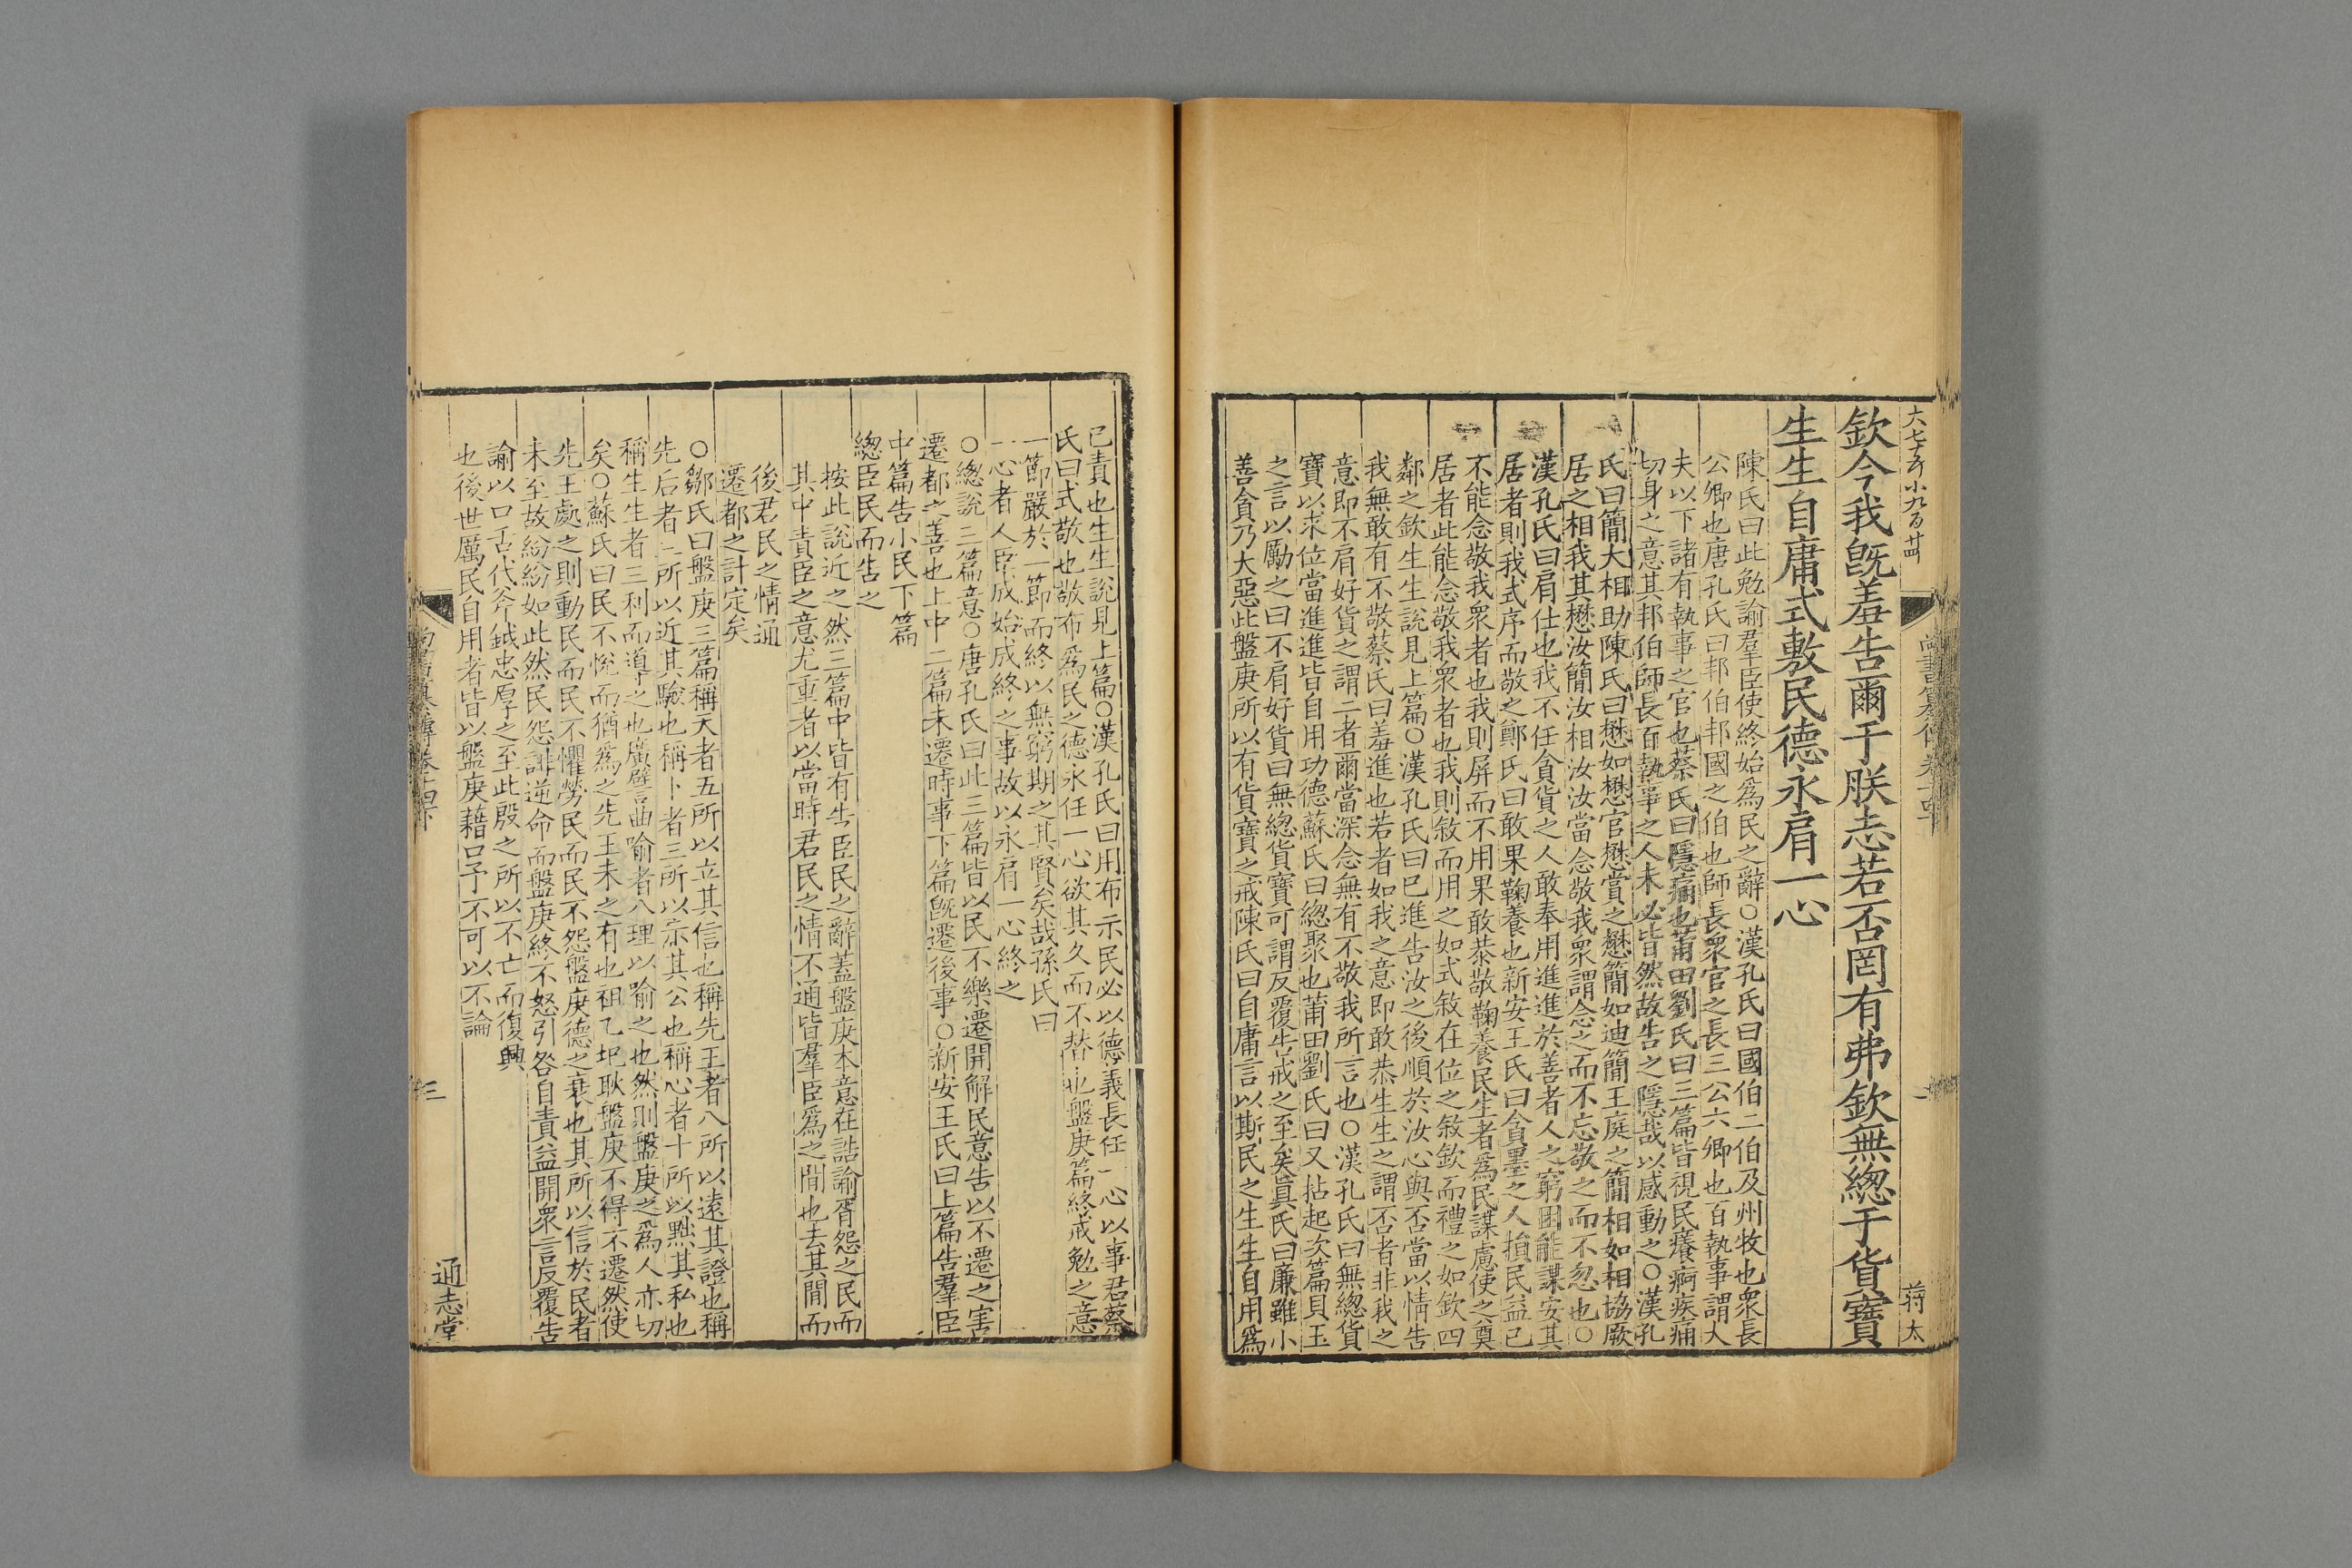 欽今我旣羞告爾于朕志若否罔有弗欽無緫于貨寶
生生自庸式敷民德永肩一心
陳氏曰此勉諭羣臣使終始爲民之辭○漢孔氏曰國伯二伯及州牧也衆長
公卿也唐孔氏曰邦伯邦國之伯也師長衆官之長三公六卿也百執事謂大
夫以下諸有執事之官也蔡氏曰隱痛也莆田劉氏曰三篇皆視民癢痾疾痛
切身之意其邦伯師長百執事之人未必皆然故告之隱哉以感動之○漢孔
氏曰簡大相助陳氏曰懋如懋官懋賞之懋簡如迪簡王庭之簡相如相協厥
居之相我其懋汝簡汝相汝汝當念敬我衆謂念之而不忘敬之而不忽也○
漢孔氏曰肩仕也我不任貪貨之人敢奉用進進於善者人之窮困能謀安其
居者則我式序而敬之鄭氏曰敢果鞠養也新安王氏曰貪墨之人損民益己
不能念敬我衆者也我則屏而不用果敢恭敬鞠養民生者爲民謀慮使之奠
居者此能念敬我衆者也我則敘而用之如式敘在位之敘欽而禮之如欽四
鄰之欽生生說見上篇○漢孔氏曰已進告汝之後順於汝心與否當以情告
我無敢有不敬蔡氏曰羞進也若者如我之意即敢恭生生之謂否者非我之
意即不肩好貨之謂二者爾當深念無有不敬我所言也○漢孔氏曰無緫貨
寶以求位當進進皆自用功德蘇氏曰緫聚也莆田劉氏曰又拈起次篇貝玉
之言以勵之曰不肩好貨曰無緫貨寶可謂反覆告戒之至矣眞氏曰廉雖小
善貪乃大惡此盤庚所以有貨寶之戒陳氏曰自庸言以斯民之生生自用爲
己責也生生說見上篇○漢孔氏曰用布示民必以德義長任一心以事君蔡
氏曰式敬也敬布爲民之德永任一心欲其久而不替也盤庚篇終戒勉之意
一節嚴於一節而終以無窮期之其賢矣哉孫氏曰
一心者人臣成始成終之事故以永肩一心終之
○緫說三篇意○唐孔氏曰此三篇皆以民不樂遷開解民意告以不遷之害
遷都之善也上中二篇未遷時事下篇旣遷後事○新安王氏曰上篇告羣臣
中篇告小民下篇
緫臣民而告之
按此說近之然三篇中皆有告臣民之辭蓋盤庚本意在誥諭胥怨之民而
其中責臣之意尤重者以當時君民之情不通皆羣臣爲之間也去其間而
後君民之情通
遷都之計定矣
○鄒氏曰盤庚三篇稱天者五所以立其信也稱先王者八所以遠其證也稱
先后者二所以近其驗也稱卜者三所以示其公也稱心者十所以黜其私也
稱生生者三利而道之也廣譬曲喻者八理以喻之也然則盤庚之爲人亦切
矣○蘇氏曰民不悅而猶爲之先王未之有也祖乙圯耿盤庚不得不遷然使
先王處之則動民而民不懼勞民而民不怨盤庚德之衰也其所以信於民者
未至故紛紛如此然民怨誹逆命而盤庚終不怒引咎自責益開衆言反覆告
諭以口舌代斧鉞忠厚之至此殷之所以不亡而復興
也後世厲民自用者皆以盤庚藉口予不可以不論
通志堂